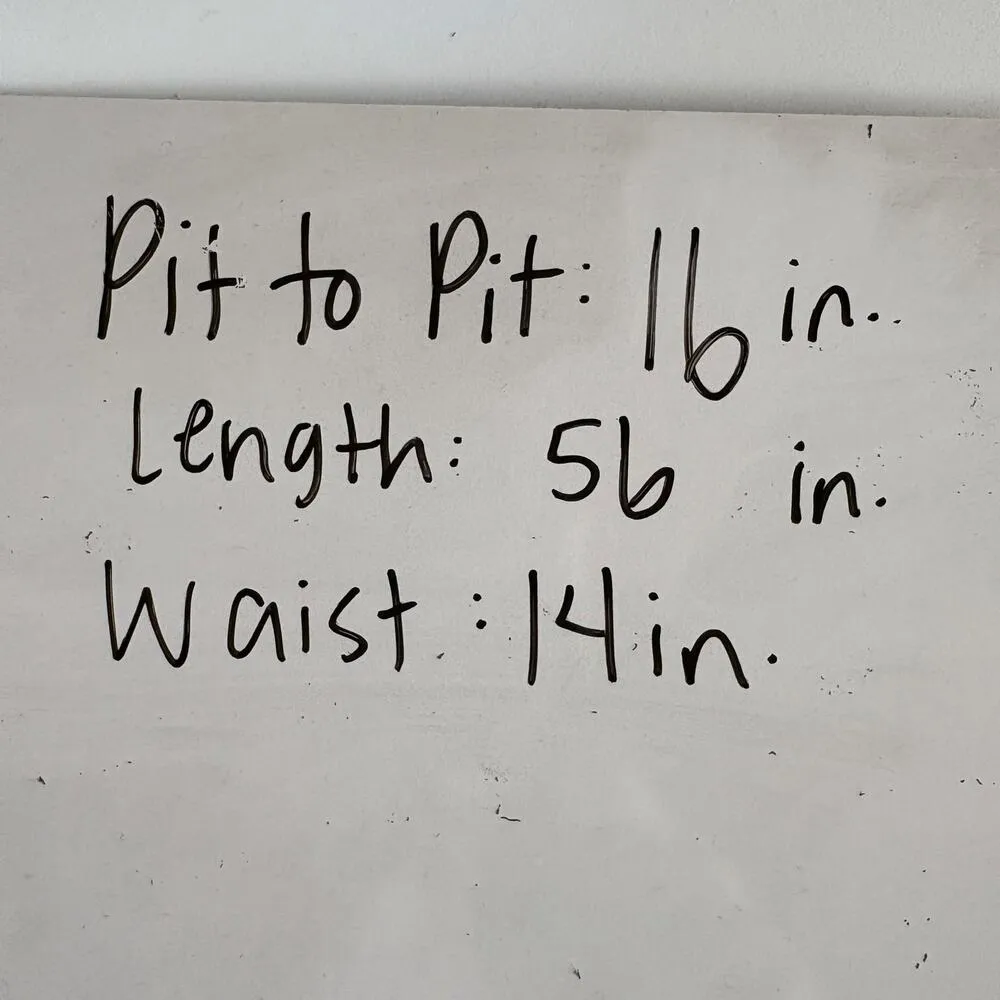 Pit to Pit: 16 in.
Length: 56 in.
Waist: 14 in.